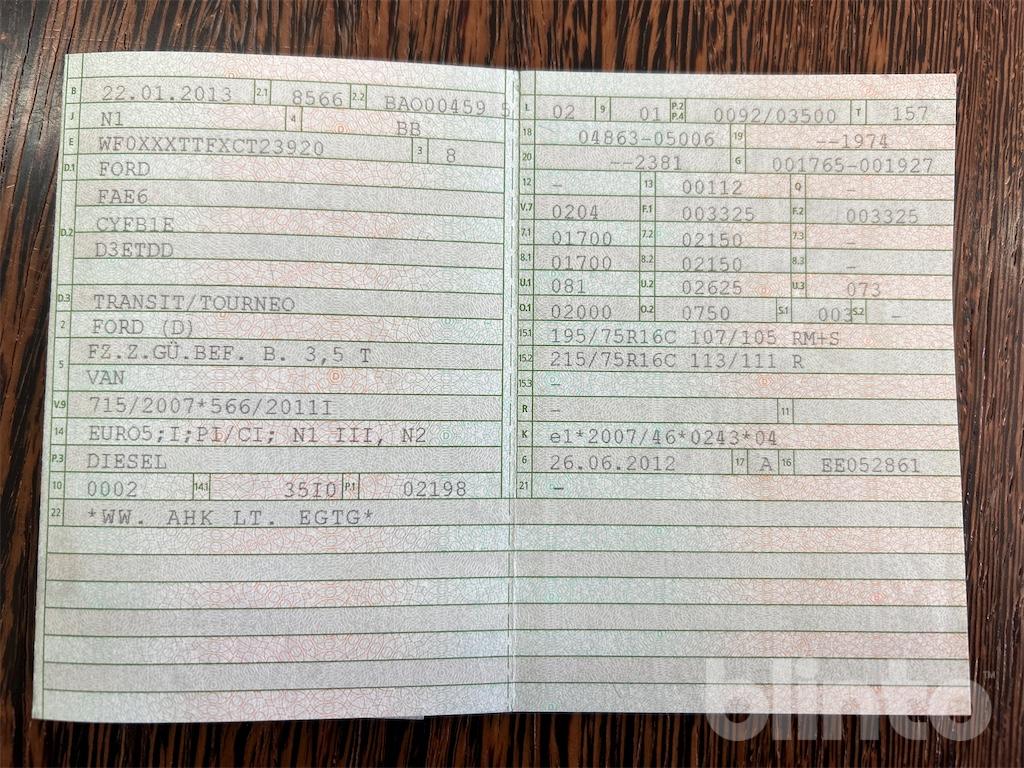 B 22.01.2013 2.1 8566 2.2 BAO00459 5
J N1 4 BB
E WF0XXXTTFXCT23920 3 8
D.1 FORD
D.2 FAE6
CYFB1E
D3ETDD
D.3 TRANSIT/TOURNEO
2 FORD (D)
5 FZ.Z.GÜ.BEF. B. 3,5 T
VAN
V.9 715/2007*566/2011I
14 EURO5;I;PI/CI; N1 III, N2
P.3 DIESEL
10 0002 14.1 35I0 P.1 02198
22 *WW. AHK LT. EGTG*
L 02 9 01 P.2 P.4 0092/03500 T 157
18 04863-05006 19 --1974
20 --2381 G 001765-001927
12 – 13 00112 Q –
V.7 0204 F.1 003325 F.2 003325
7.1 01700 7.2 02150 7.3 –
8.1 01700 8.2 02150 8.3 –
U.1 081 U.2 02625 U.3 073
O.1 02000 O.2 0750 S.1 003 S.2 –
15.1 195/75R16C 107/105 RM+S
15.2 215/75R16C 113/111 R
15.3 –
R – 11
K e1*2007/46*0243*04
6 26.06.2012 17 A 16 EE052861
21 –
blinto™